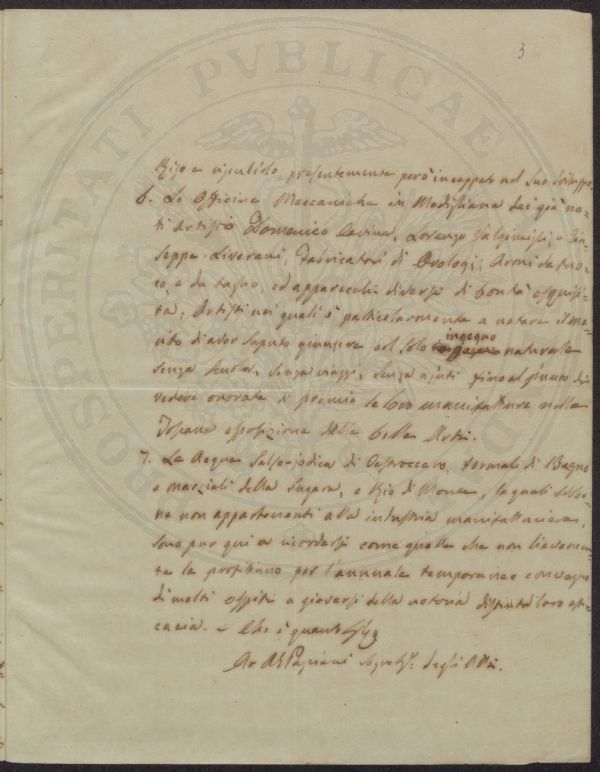 3
PROSPERITATI PVBLICAE
presentemente però inceppato nel suo sviluppo
6. Le Officine Meccaniche in Modigliana dei già no-
ti Artisti Domenico Savina, Lorenzo Valgimigli, e Giu-
seppe Liverani, Fabbricatori di Orologi, Armi da fuo-
co, e da taglio, ed apparecchi diversi di bontà esquisi-
ta; Artisti nei quali è particolarmente a notare il me-
rito di aver saputo giungere col solo ingegno naturale
senza scuola, senza viaggi, senza ajuti fino al punto di
vedere onorate di premio le loro manifatture nella
Toscana esposizione delle belle Arti.
7. Le Acque Salso-jodica di Castrocaro, termali di Bagno
e marziali della e Rio di Monte, le quali sebbe-
ne non appartenenti alla industria manifatturiera,
sono pur qui a ricordarsi come quelle che non lievemen-
te la profittano per l'annuale temporaneo convegno
di molti ospiti a giovarsi della notoria loro effi-
cacia. - Che è quanto
Papiani Segret. degli Atti.